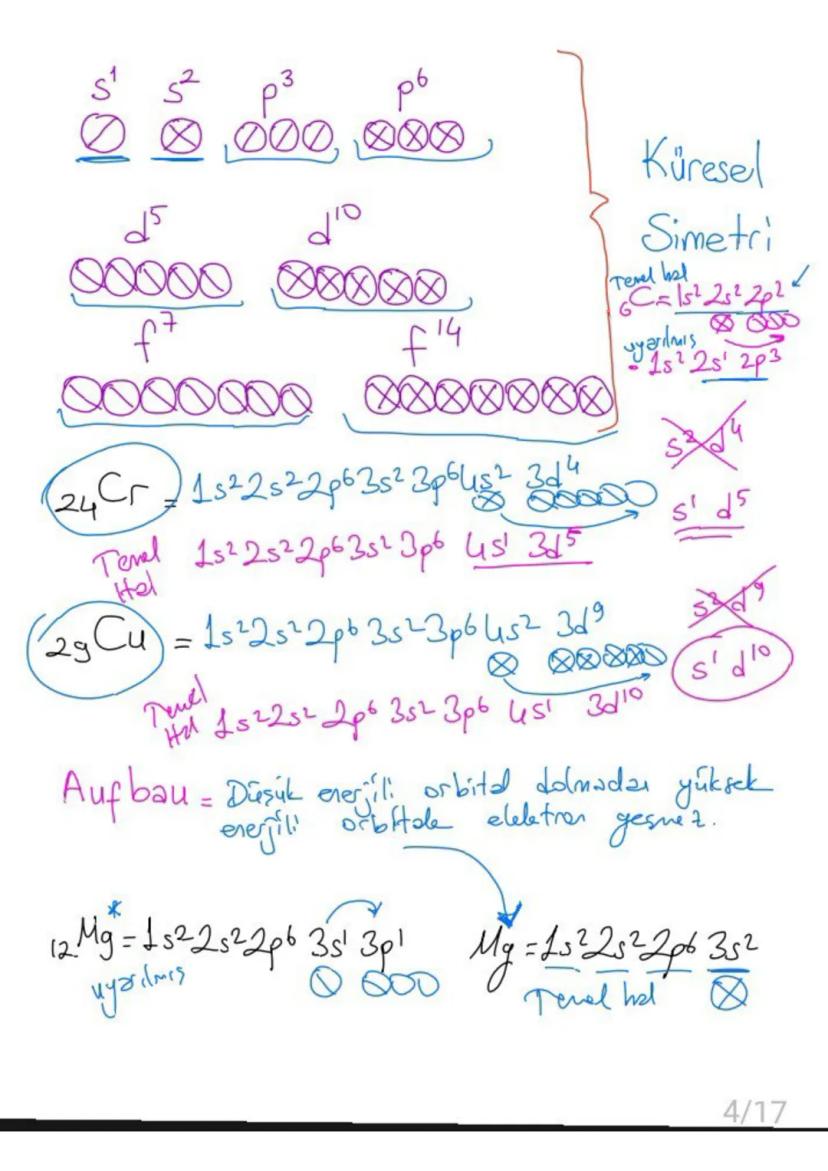 s¹ s² p³ p⁶
Küresel
Simetri
d⁵ d¹⁰
Temel hal
₆C = 1s² 2s² 2p²
uyarılmış
1s² 2s¹ 2p³
f⁷ f¹⁴
s² d⁴
₂₄Cr = 1s² 2s² 2p⁶ 3s² 3p⁶ 4s² 3d⁴
s¹ d⁵
Temel Hal 1s² 2s² 2p⁶ 3s² 3p⁶ 4s¹ 3d⁵
s² d⁹
₂₉Cu = 1s² 2s² 2p⁶ 3s² 3p⁶ 4s² 3d⁹
s¹ d¹⁰
Temel Hal 1s² 2s² 2p⁶ 3s² 3p⁶ 4s¹ 3d¹⁰
Aufbau = Düşük enerjili orbital dolmadan yüksek
enerjili orbitale elektron geçmez.
₁₂Mg* = 1s² 2s² 2p⁶ 3s¹ 3p¹
uyarılmış
Mg = 1s² 2s² 2p⁶ 3s²
Temel hal
4/17